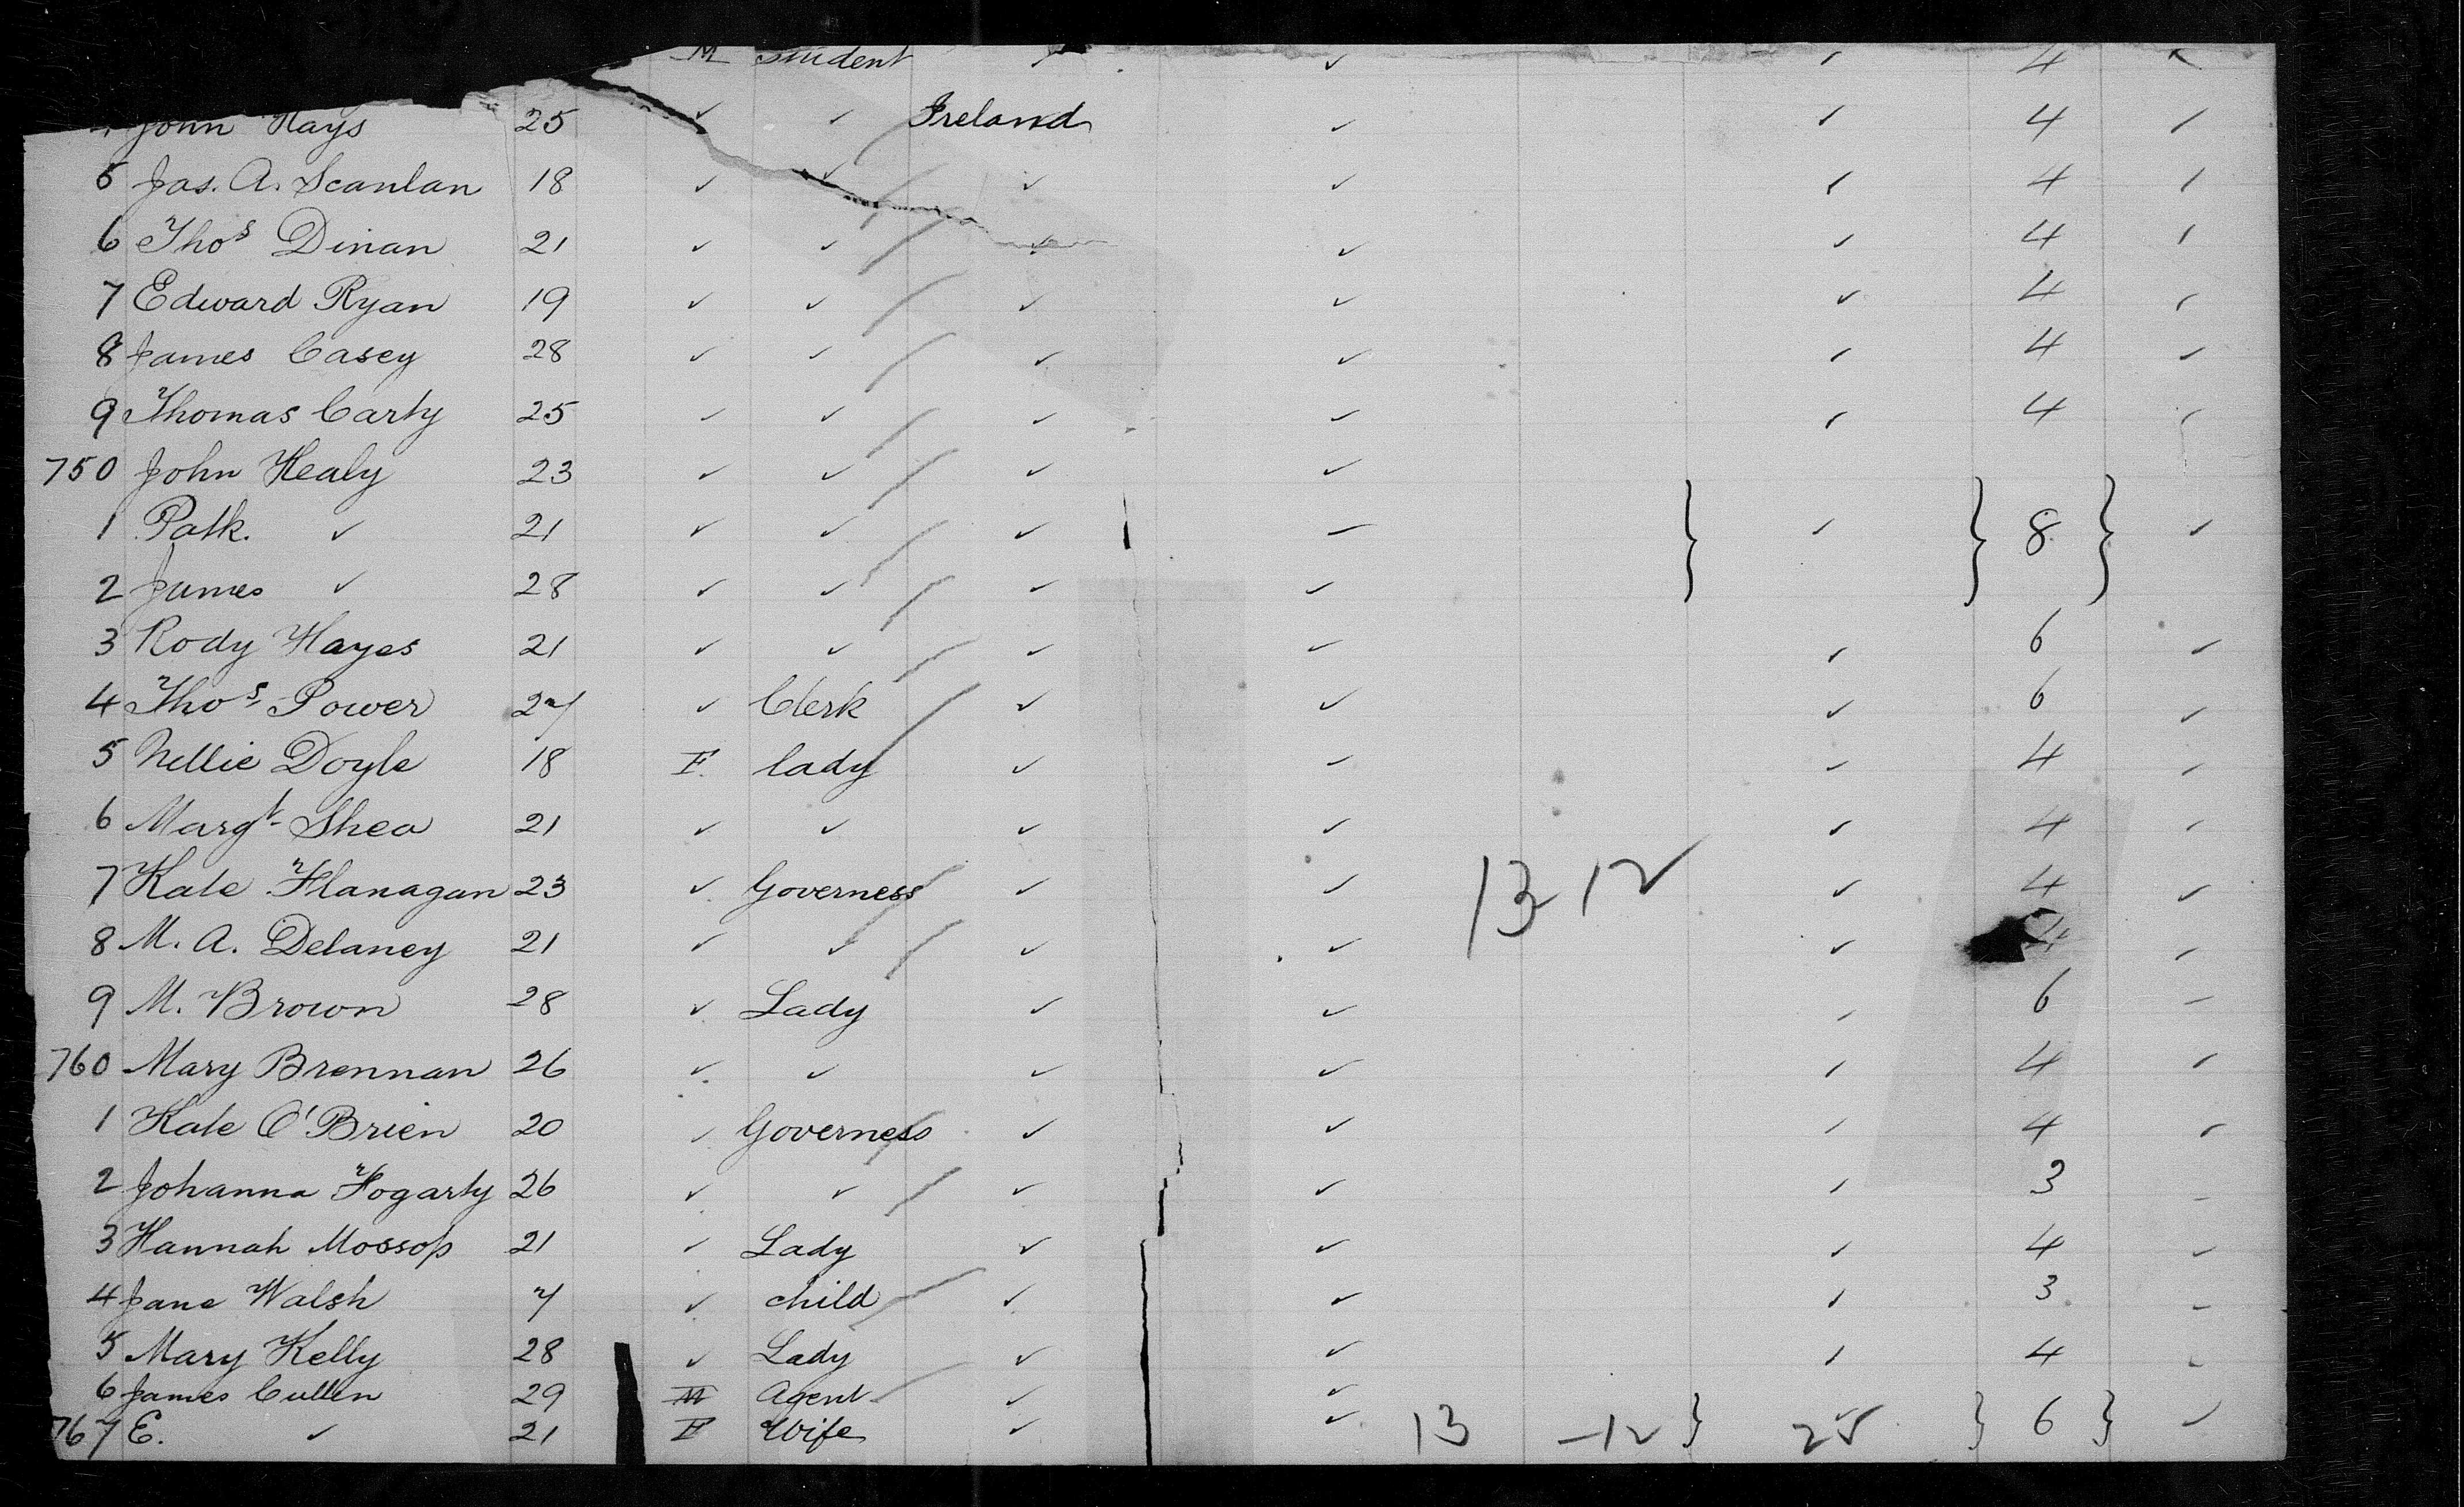 M student ✓ ✓ ✓ 4 ✓
4 John Hays 25 ✓ ✓ Ireland ✓ ✓ 4 ✓
5 Jas. A. Scanlan 18 ✓ ✓ ✓ ✓ ✓ 4 ✓
6 Thos Dinan 21 ✓ ✓ ✓ ✓ ✓ 4 ✓
7 Edward Ryan 19 ✓ ✓ ✓ ✓ ✓ 4 ✓
8 James Casey 28 ✓ ✓ ✓ ✓ ✓ 4 ✓
9 Thomas Carty 25 ✓ ✓ ✓ ✓ ✓ 4 ✓
750 John Healy 23 ✓ ✓ ✓ ✓
1 Patk. ✓ 21 ✓ ✓ ✓ ✓ } ✓ } 8 } ✓
2 James ✓ 28 ✓ ✓ ✓ ✓
3 Rody Hayes 21 ✓ ✓ ✓ ✓ ✓ 6 ✓
4 Thos Power 27 ✓ Clerk ✓ ✓ ✓ 6 ✓
5 Nellie Doyle 18 F. lady ✓ ✓ ✓ 4 ✓
6 Margt Shea 21 ✓ ✓ ✓ ✓ ✓ 4 ✓
7 Kate Flanagan 23 ✓ Governess ✓ ✓ 13 12 ✓ 4 ✓
8 M. A. Delaney 21 ✓ ✓ ✓ ✓ ✓ 4 ✓
9 M. Brown 28 ✓ Lady ✓ ✓ ✓ 6 ✓
760 Mary Brennan 26 ✓ ✓ ✓ ✓ ✓ 4 ✓
1 Kate O'Brien 20 ✓ Governess ✓ ✓ ✓ 4 ✓
2 Johanna Fogarty 26 ✓ ✓ ✓ ✓ ✓ 3 ✓
3 Hannah Mossop 21 ✓ Lady ✓ ✓ ✓ 4 ✓
4 Jane Walsh 7 ✓ child ✓ ✓ ✓ 3 ✓
5 Mary Kelly 28 ✓ Lady ✓ ✓ ✓ 4 ✓
6 James Cullen 29 M Agent ✓ ✓
767 E. ✓ 21 F Wife ✓ ✓ 13 -12 } 25 } 6 } ✓